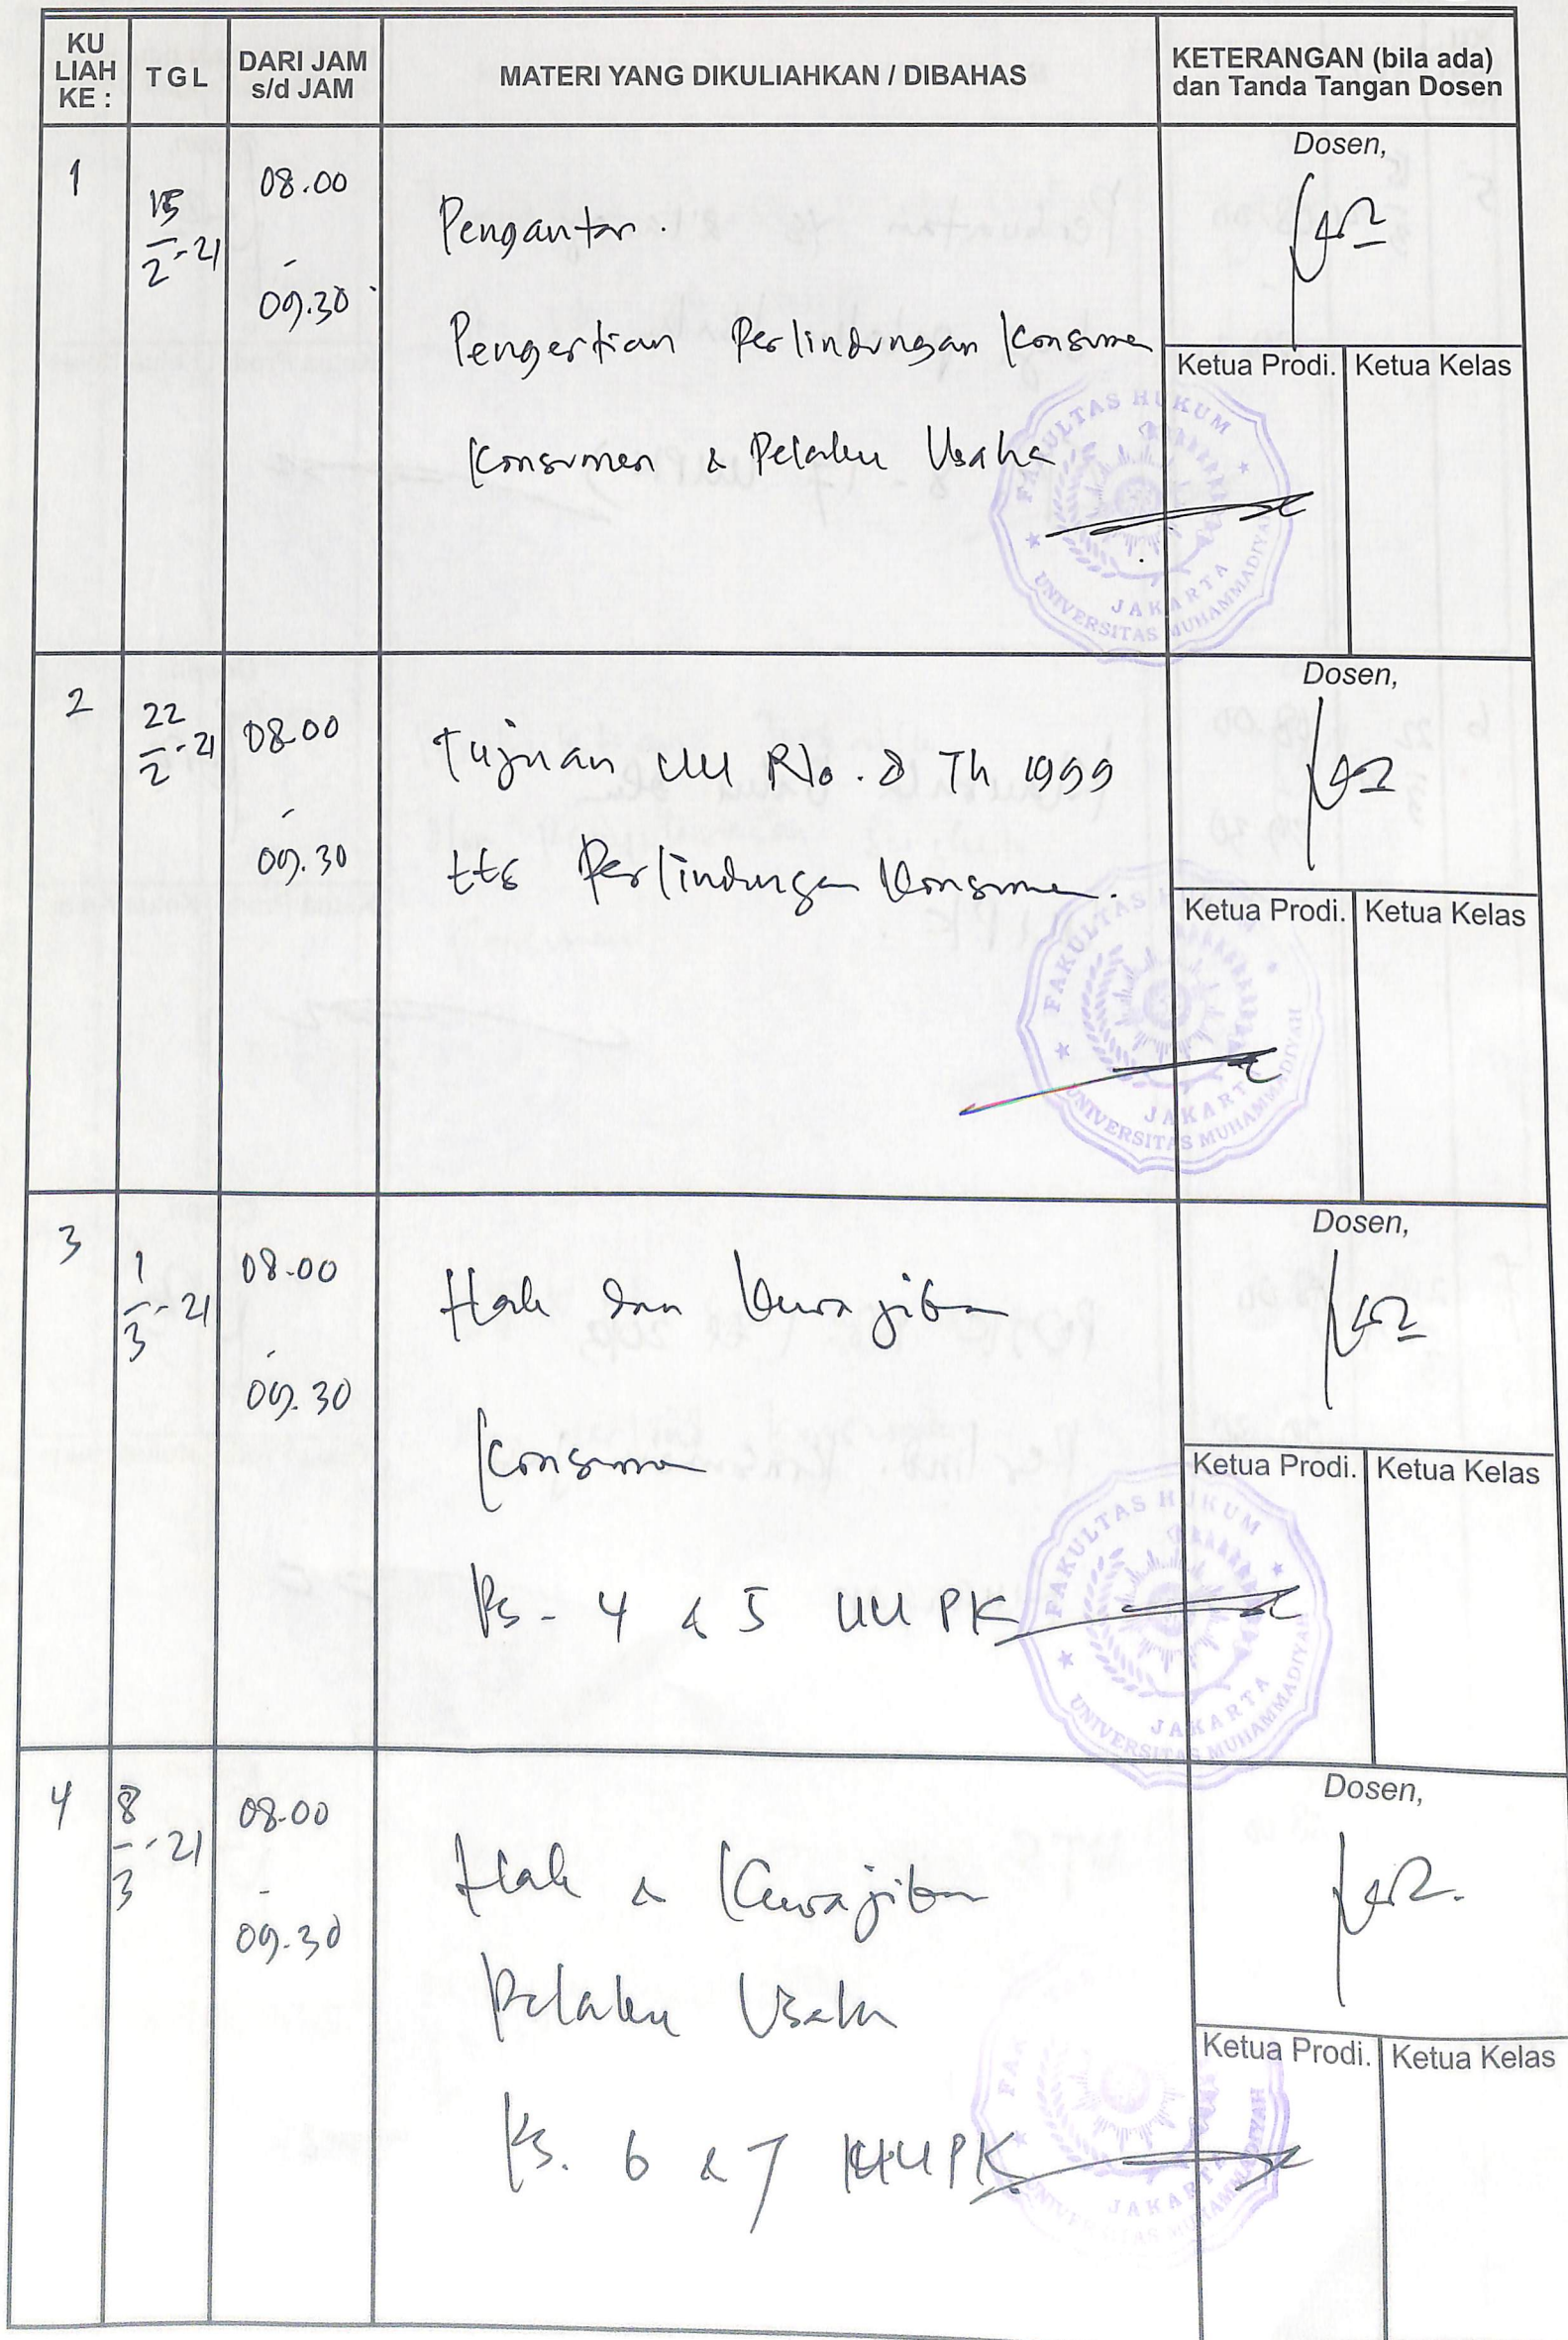 KU
LIAH
KE :
TGL
DARI JAM
s/d JAM
MATERI YANG DIKULIAHKAN / DIBAHAS
KETERANGAN (bila ada)
dan Tanda Tangan Dosen
1
15/2-21
08.00
-
09.30
Pengantar.
Pengertian Perlindungan Konsumen
Konsumen & Pelaku Usaha
Dosen,
Ketua Prodi.
Ketua Kelas
FAKULTAS HUKUM
UNIVERSITAS MUHAMMADIYAH
JAKARTA
2
22/2-21
08.00
-
09.30
Tujuan UU No. 8 Th 1999
ttg Perlindungan Konsumen.
Dosen,
Ketua Prodi.
Ketua Kelas
FAKULTAS
UNIVERSITAS MUHAMMADIYAH
JAKARTA
3
1/3-21
08.00
-
09.30
Hak dan Kewajiban
Konsumen
Ps - 4 & 5 UUPK
Dosen,
Ketua Prodi.
Ketua Kelas
FAKULTAS HUKUM
UNIVERSITAS MUHAMMADIYAH
JAKARTA
4
8/3-21
08.00
-
09.30
Hak & Kewajiban
Pelaku Usaha
Ps. 6 & 7 UUPK
Dosen,
Ketua Prodi.
Ketua Kelas
UNIVERSITAS MUHAMMADIYAH
JAKARTA